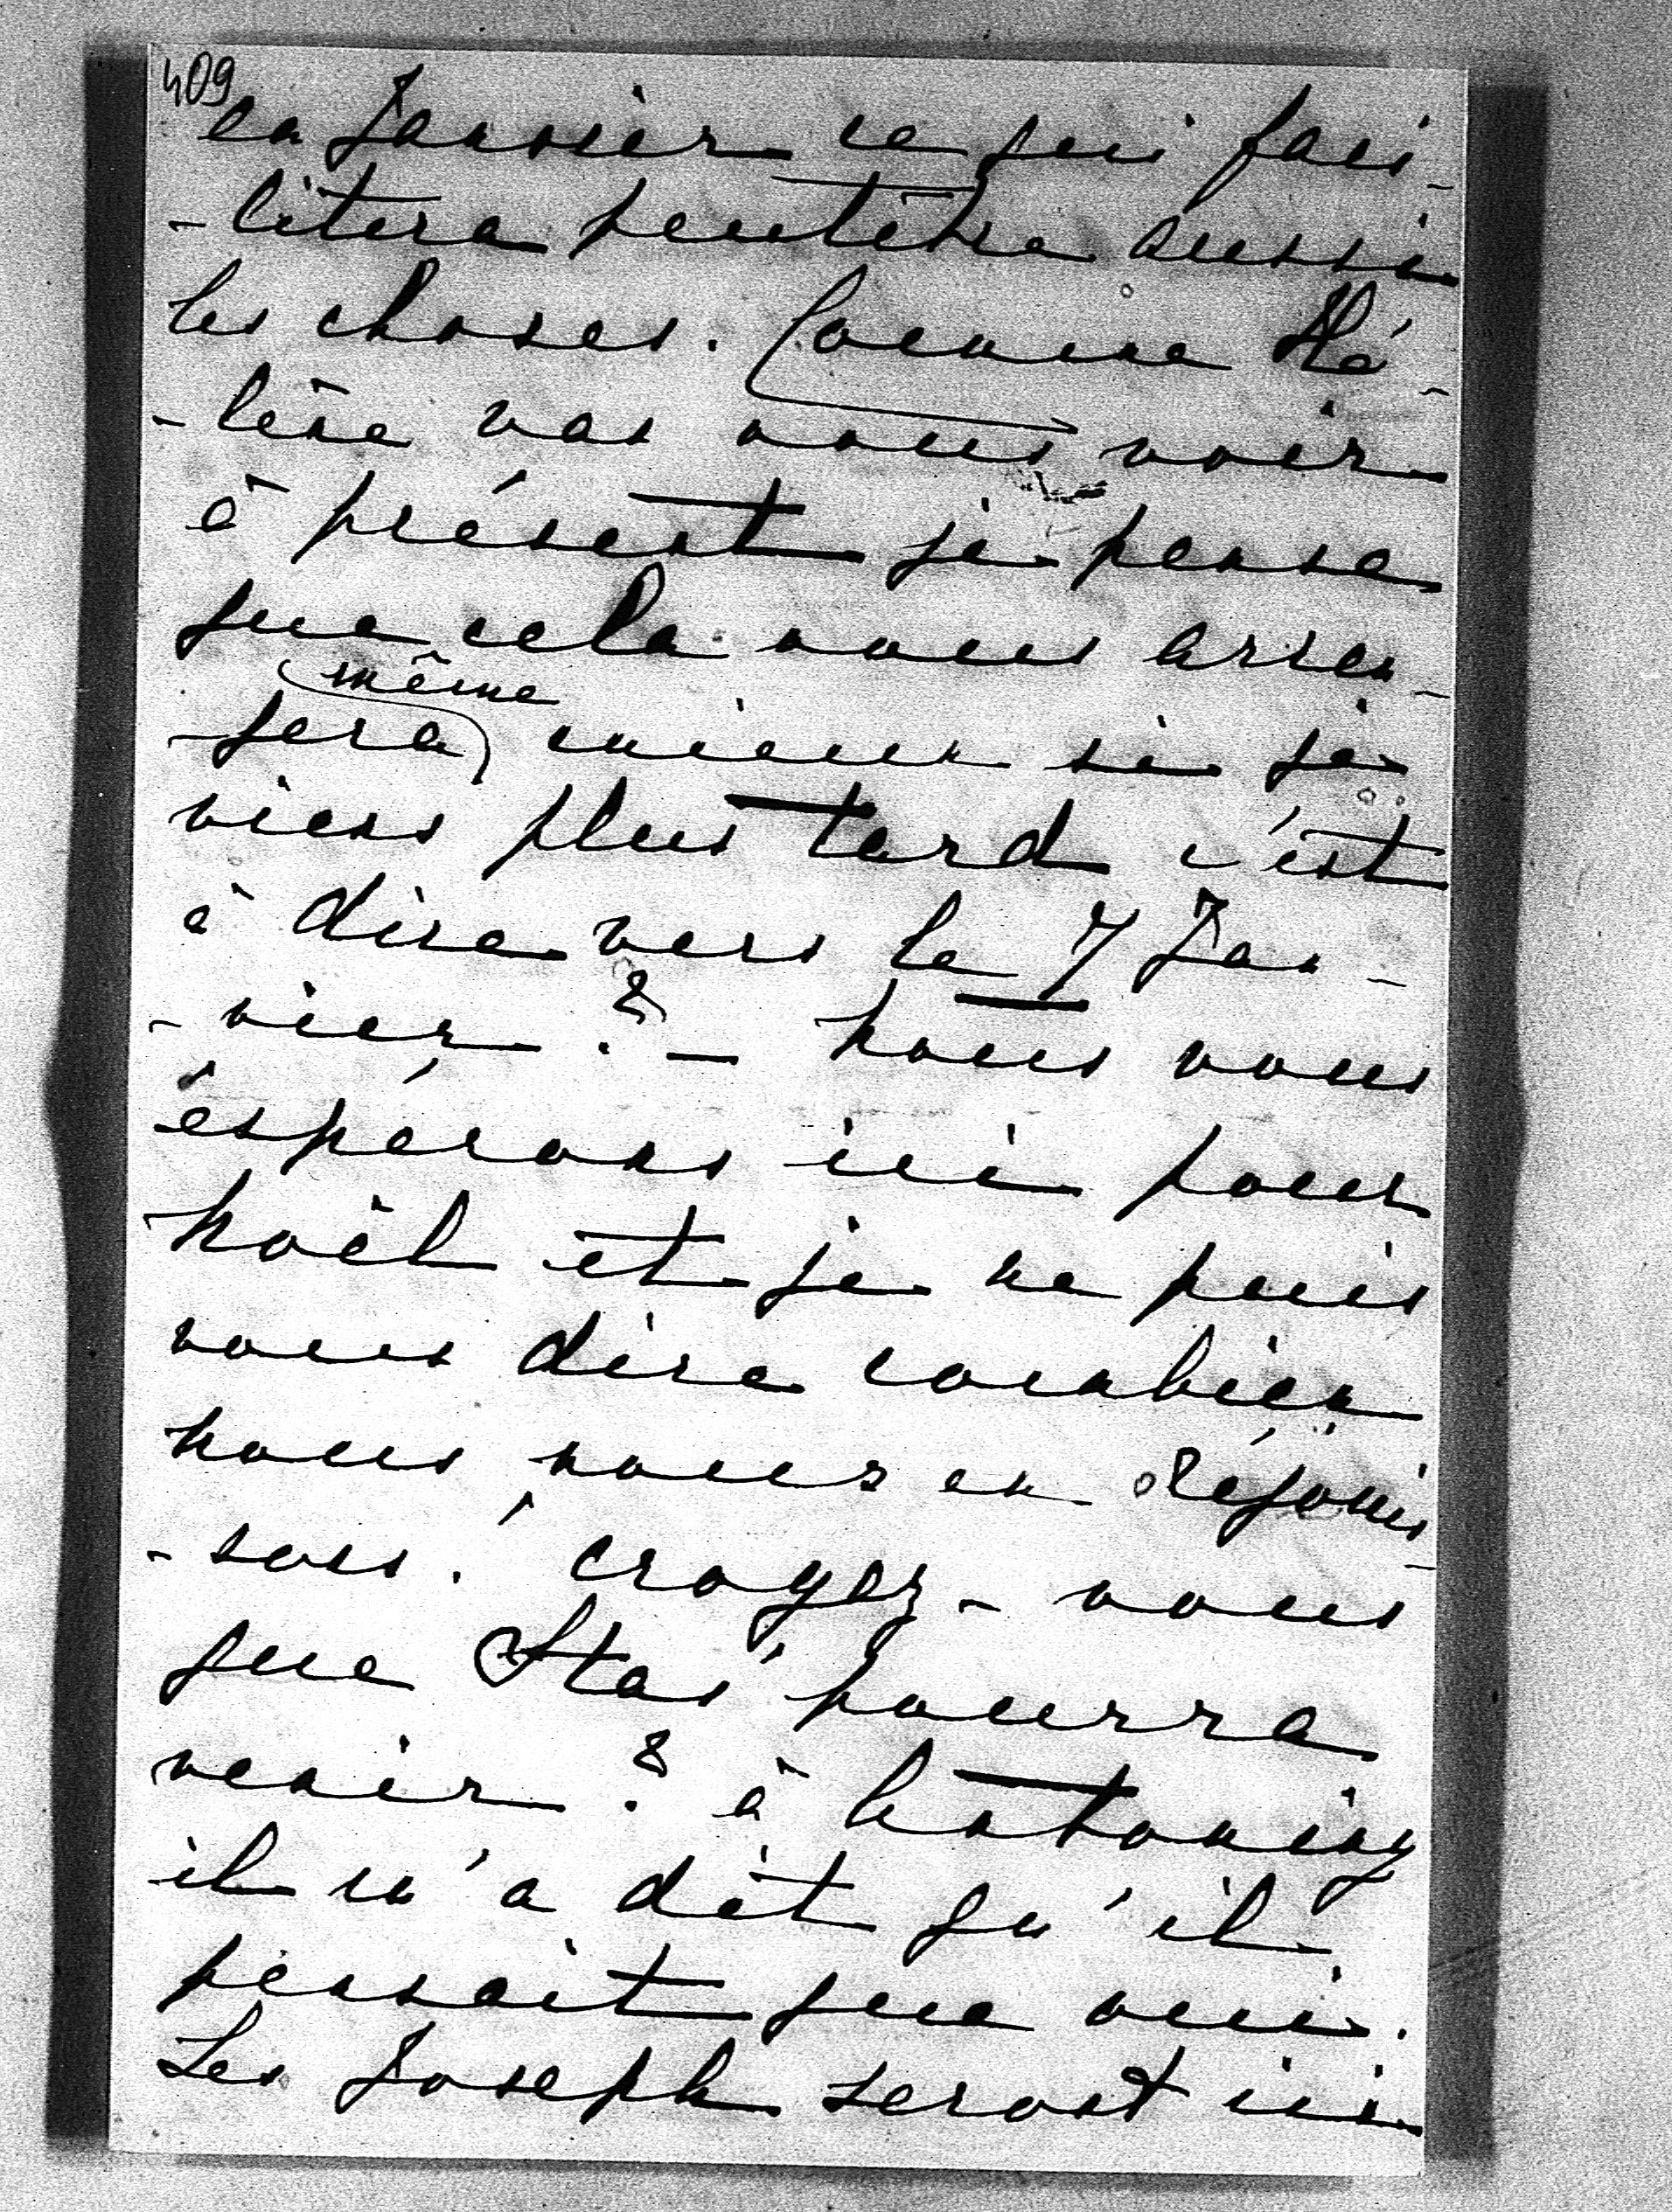 409
en Janvier ce qui faci-
-litera peutêtre aussi
les choses. Comme Hé-
-lène vas vous voir
à présent je pense
que cela vous arran-
même
-gera mieux si je
viens plus tard c'est
à dire vers le 7 Jan-
-vier? - Nous vous
éspérons ici pour
Noël et je ne puis
vous dire combien
nous nous en réjouis-
-sons! croyez-vous
que Staś pourra
venir? à Antoniny
il m'a dit qu'il
pensait que oui.
Les Joseph seront ici